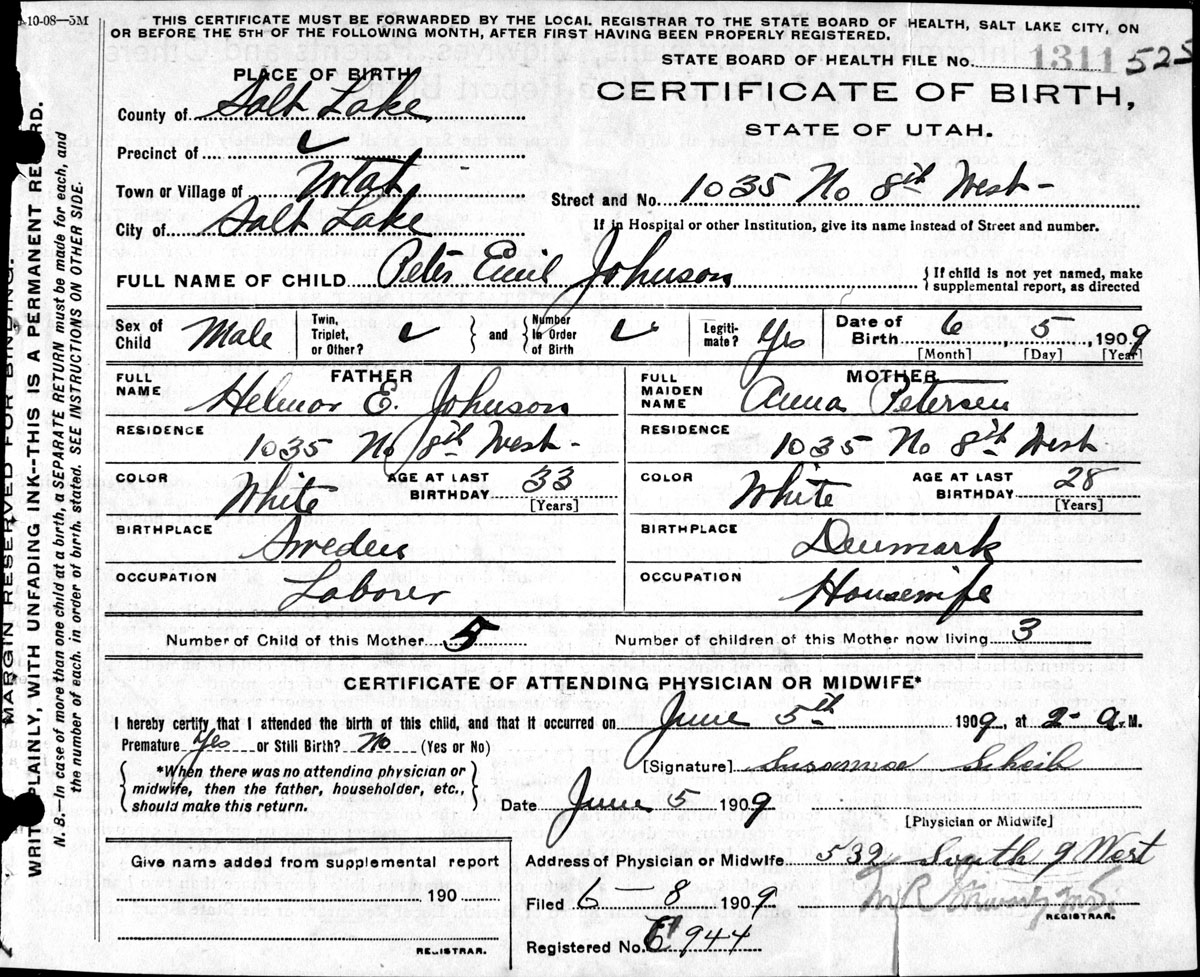 -10-08—5M
THIS CERTIFICATE MUST BE FORWARDED BY THE LOCAL REGISTRAR TO THE STATE BOARD OF HEALTH, SALT LAKE CITY, ON
OR BEFORE THE 5TH OF THE FOLLOWING MONTH, AFTER FIRST HAVING BEEN PROPERLY REGISTERED.
STATE BOARD OF HEALTH FILE No. 1311 525
PLACE OF BIRTH
CERTIFICATE OF BIRTH,
STATE OF UTAH.
County of Salt Lake
Precinct of ✓
Town or Village of Utah
Street and No. 1035 No 8th West-
City of Salt Lake
If in Hospital or other Institution, give its name instead of Street and number.
FULL NAME OF CHILD Peter Emil Johnson
{If child is not yet named, make
supplemental report, as directed
Sex of Child Male Twin, Triplet, or Other? ✓ } and { Number in Order of Birth ✓ Legitimate? Yes Date of Birth 6, 5, 1909
[Month] [Day] [Year]
FATHER MOTHER
FULL NAME Helmor E. Johnson FULL MAIDEN NAME Anna Petersen
RESIDENCE 1035 No 8th West- RESIDENCE 1035 No 8th West
COLOR White AGE AT LAST BIRTHDAY 33 [Years] COLOR White AGE AT LAST BIRTHDAY 28 [Years]
BIRTHPLACE Sweden BIRTHPLACE Denmark
OCCUPATION Laborer OCCUPATION Housewife
Number of Child of this Mother 5 Number of children of this Mother now living 3
CERTIFICATE OF ATTENDING PHYSICIAN OR MIDWIFE*
I hereby certify that I attended the birth of this child, and that it occurred on June 5th 1909, at 2- A.M.
Premature Yes or Still Birth? No (Yes or No)
[Signature] Susannae Scheib
{ *When there was no attending physician or
midwife, then the father, householder, etc.,
should make this return. }
Date June 5 1909
[Physician or Midwife]
Give name added from supplemental report
190
REGISTRAR.
Address of Physician or Midwife 532 South 9 West
Filed 6-8 1909
M R
REGISTRAR.
Registered No. E 944
MARGIN RESERVED FOR BINDING.
WRITE PLAINLY, WITH UNFADING INK--THIS IS A PERMANENT RECORD.
N. B.—In case of more than one child at a birth, a SEPARATE RETURN must be made for each, and
the number of each, in order of birth, stated. SEE INSTRUCTIONS ON OTHER SIDE.